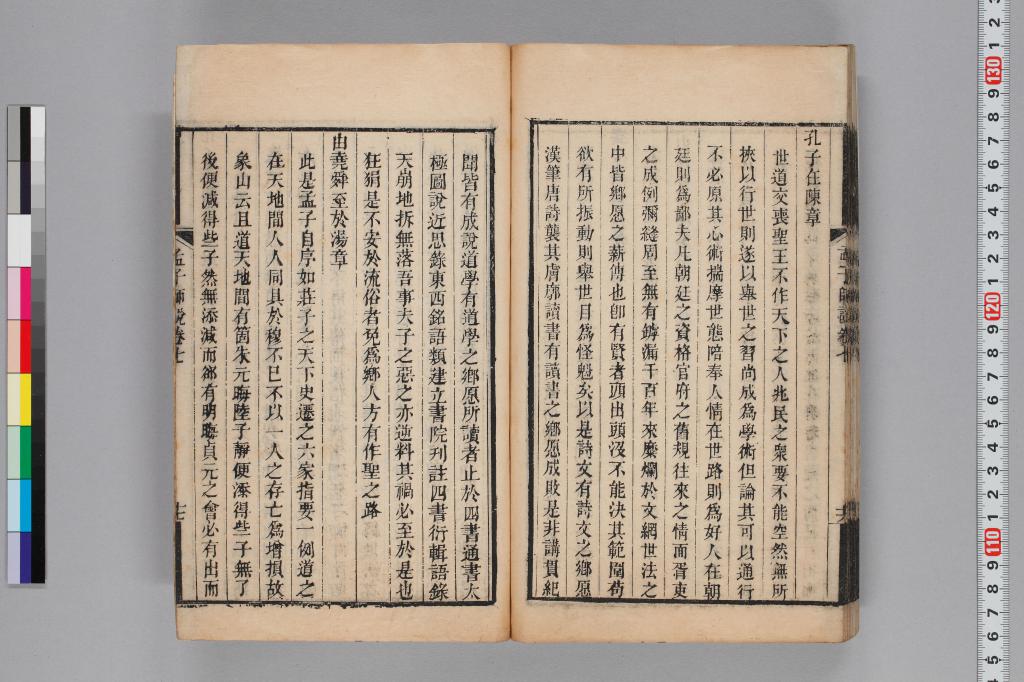 孔子在陳章
世道交喪聖王不作天下之人兆民之衆要不能空然無所
挾以行世則遂以舉世之習尚成爲學術但論其可以通行
不必原其心術揣摩世態陪奉人情在世路則爲好人在朝
廷則爲鄙夫凡朝廷之資格官府之舊規往來之情面胥吏
之成例彌縫周至無有罅漏千百年來糜爛於文網世法之
中皆鄉愿之薪傳也卽有賢者頭出頭沒不能決其範圍苟
欲有所振動則舉世目爲怪魁矣以是詩文有詩文之鄉愿
漢筆唐詩襲其膚廓讀書有讀書之鄉愿成敗是非講貫紀
聞皆有成說道學有道學之鄉愿所讀者止於四書通書太
極圖說近思錄東西銘語類建立書院刊註四書衍輯語錄
天崩地拆無落吾事夫子之惡之亦逆料其禍必至於是也
狂狷是不安於流俗者免爲鄉人方有作聖之路
由堯舜至於湯章
此是孟子自序如莊子之天下史遷之六家指要一例道之
在天地間人人同具於穆不已不以一人之存亡爲增損故
象山云且道天地間有箇朱元晦陸子靜便添得些子無了
後便減得些子然無添減而卻有明晦貞元之會必有出而
孟子師說卷七
孟子師說卷七